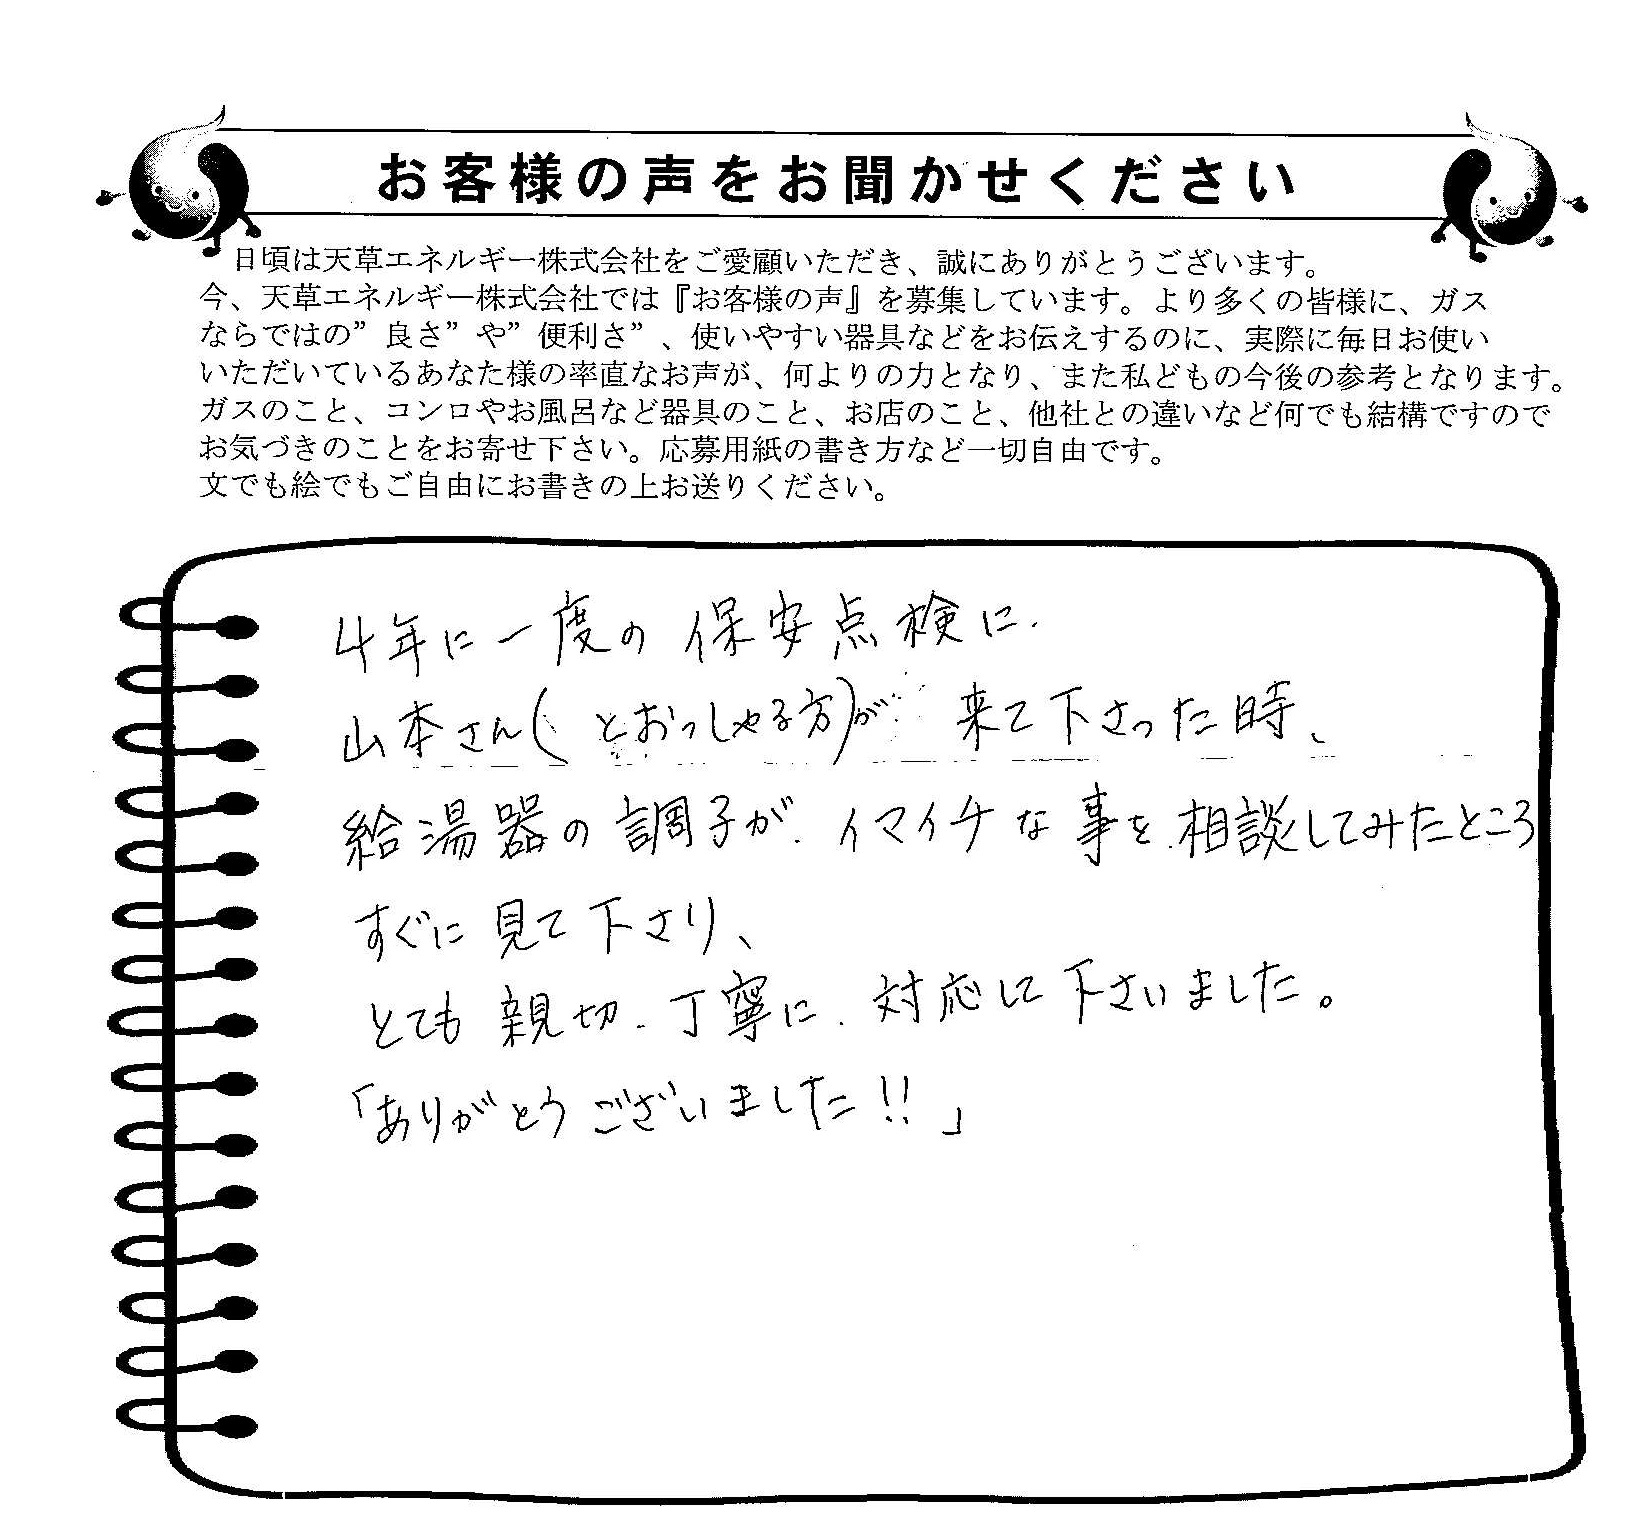 お客様の声をお聞かせください
日頃は天草エネルギー株式会社をご愛顧いただき、誠にありがとうございます。
今、天草エネルギー株式会社では『お客様の声』を募集しています。より多くの皆様に、ガス
ならではの”良さ”や”便利さ”、使いやすい器具などをお伝えするのに、実際に毎日お使い
いただいているあなた様の率直なお声が、何よりの力となり、また私どもの今後の参考となります。
ガスのこと、コンロやお風呂など器具のこと、お店のこと、他社との違いなど何でも結構ですので
お気づきのことをお寄せ下さい。応募用紙の書き方など一切自由です。
文でも絵でもご自由にお書きの上お送りください。
4年に一度の保安点検に.
山本さん(とおっしゃる方)が 来て下さった時、
給湯器の調子が.イマイチな事を.相談してみたところ
すぐに見て下さり、
とても親切.丁寧に.対応して下さいました。
「ありがとうございました!!」